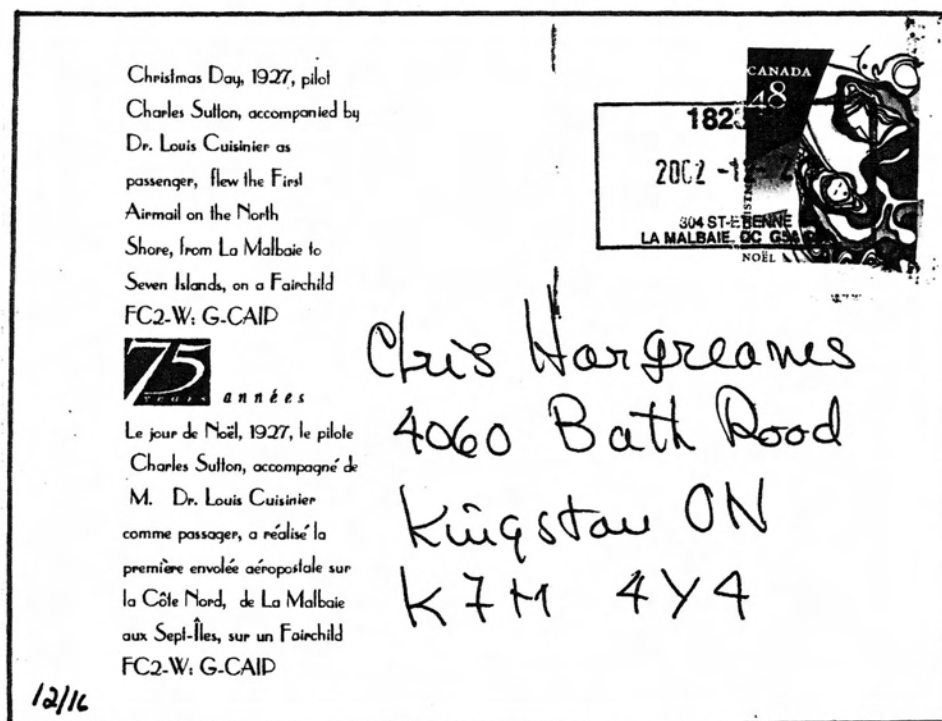 Christmas Day, 1927, pilot
Charles Sutton, accompanied by
Dr. Louis Cuisinier as
passenger, flew the First
Airmail on the North
Shore, from La Malbaie to
Seven Islands, on a Fairchild
FC2-W: G-CAIP
75
years
années
Le jour de Noël, 1927, le pilote
Charles Sutton, accompagné de
M. Dr. Louis Cuisinier
comme passager, a réalisé la
première envolée aéropostale sur
la Côte Nord, de La Malbaie
aux Sept-Îles, sur un Fairchild
FC2-W: G-CAIP
12/16
CANADA
48
NOËL
2002 -12-
304 ST-ETIENNE
LA MALBAIE QC
Chris Hargreaves
4060 Bath Road
Kingston ON
K7M 4Y4